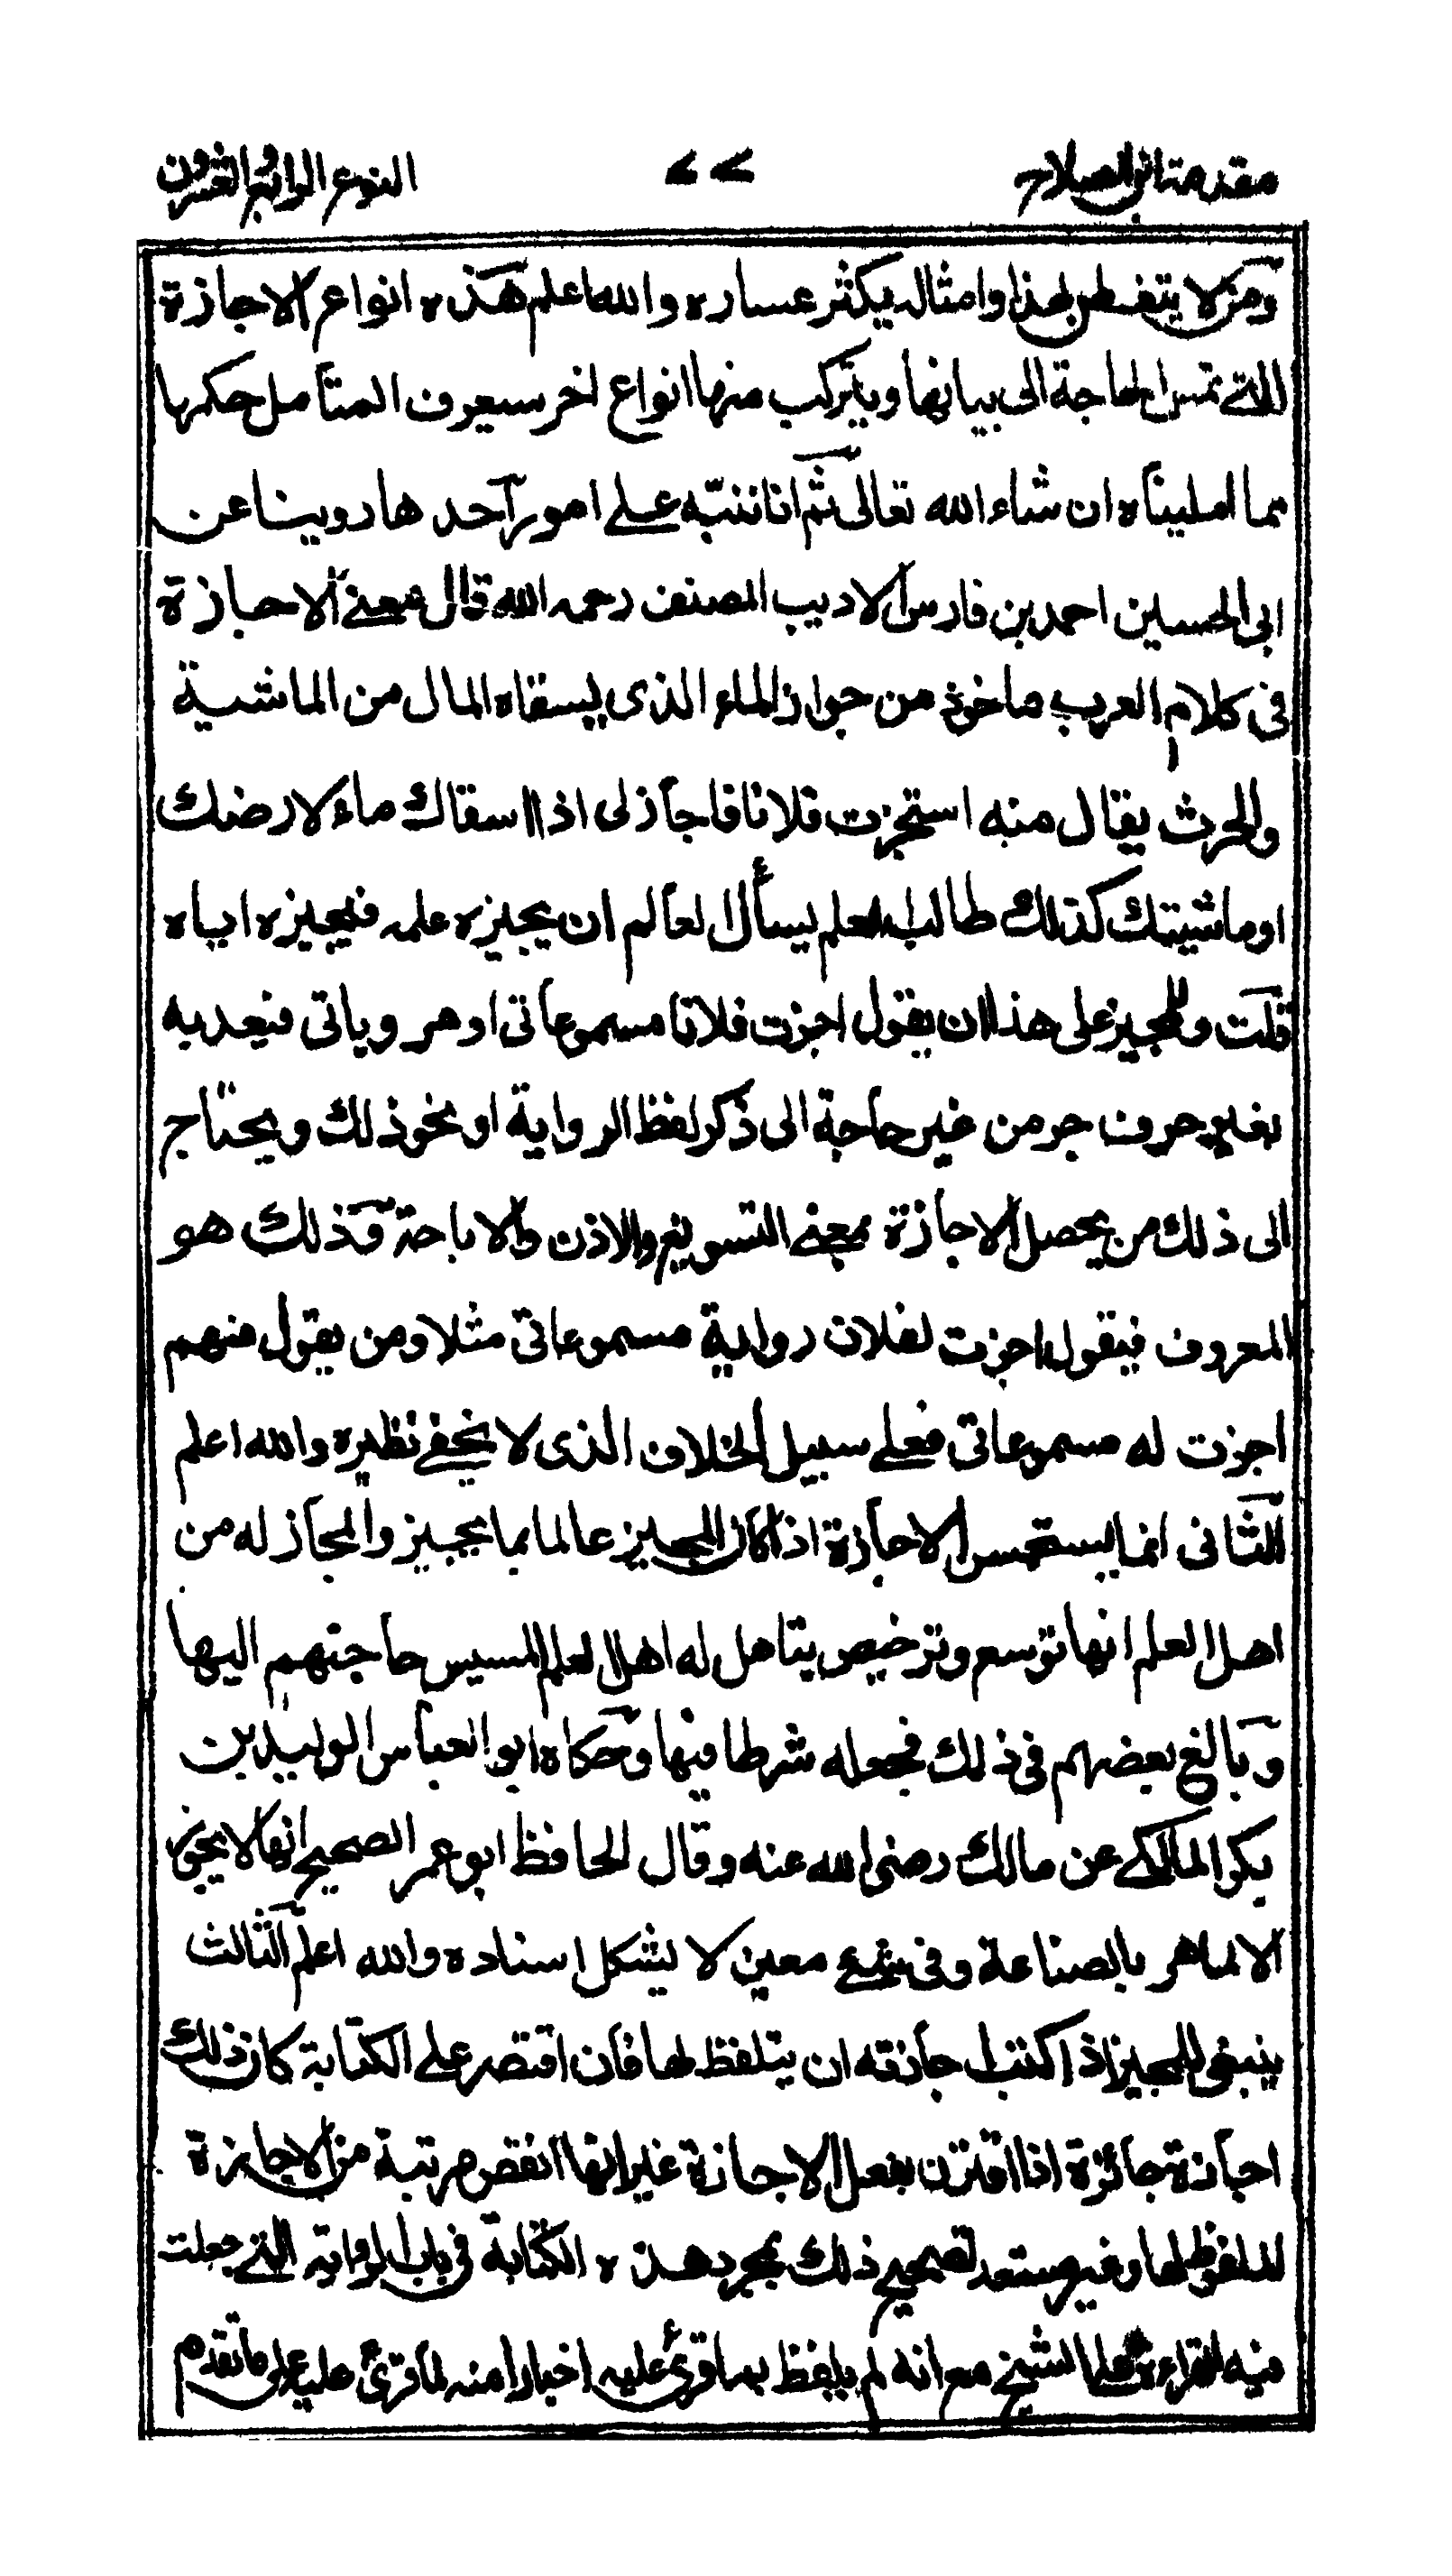 مقدمة ابن الصلاح ٧٧ النوع الرابع والعشرون
ومن لا يتفطن لهذا وامثاله يكثر عساره والله اعلم هذه انواع الاجازة
اللاتے تمس الحاجة الى بيانها ويتركب منها انواع اخر سيعرف المتأمل حكمها
مما امليناه ان شاء الله تعالى ثم اناننبّه علے امور آحدها روينا عن
ابى الحسين احمد بن فارس الاديب المصنف رحمه الله قال معنے الاجازة
فى كلام العرب ماخوذ من جواز الماء الذى يسقاه المال من الماشية
والحرث يقال منه استجزت فلانا فاجازلى اذا اسقاك ماء لارضك
اوماشيتك كذلك طالب العلم يسأل العالم ان يجيزه علمه فيجيزه اياه
قلت وللمجيز على هذا ان يقول اجزت فلانا مسموعاتى او مروياتى فيعديه
بغير حرف جر من غير حاجة الى ذكر لفظ الرواية او نحو ذلك ويحتاج
الى ذلك من يجعل الاجازة بمعنے التسويغ والاذن والاباحة وذلك هو
المعروف فيقول اجزت لفلان رواية مسموعاتى مثلا ومن يقول منهم
اجزت له مسموعاتى فعلے سبيل الخلاف الذى لا يخفے نظيره والله اعلم
الثانى انما يستحسن الاجازة اذا كان المجيز عالما بما يجيز والمجاز له من
اهل العلم انها توسع وترخيص يتاهل له اهل العلم لمسيس حاجتهم اليها
وبالغ بعضهم فى ذلك فجعله شرطا فيها وحكاه ابو العباس الوليد بن
بكر المالكے عن مالك رضى الله عنه وقال الحافظ ابو عمر الصحيح انها لا يجوز
الا لماهر بالصناعة وفى شئ معين لا يشكل اسناده والله اعلم الثالث
ينبغى للمجيز اذا كتب اجازته ان يتلفظ لها فان اقتصر علے الكتابة كان ذلك
اجازة جائزة اذا اقترن بفعل الاجازة غير انها انقص مرتبة من الاجازة
الملفوظ لها وغير مستعد تصحيح ذلك بمجرد هذه الكتابة فى باب الرواية التے جعلت
فيه القراءة علے الشيخ مع انه لم يلفظ بما قرئ عليه اخبارا منه لما قرئ عليه على ما تقدم